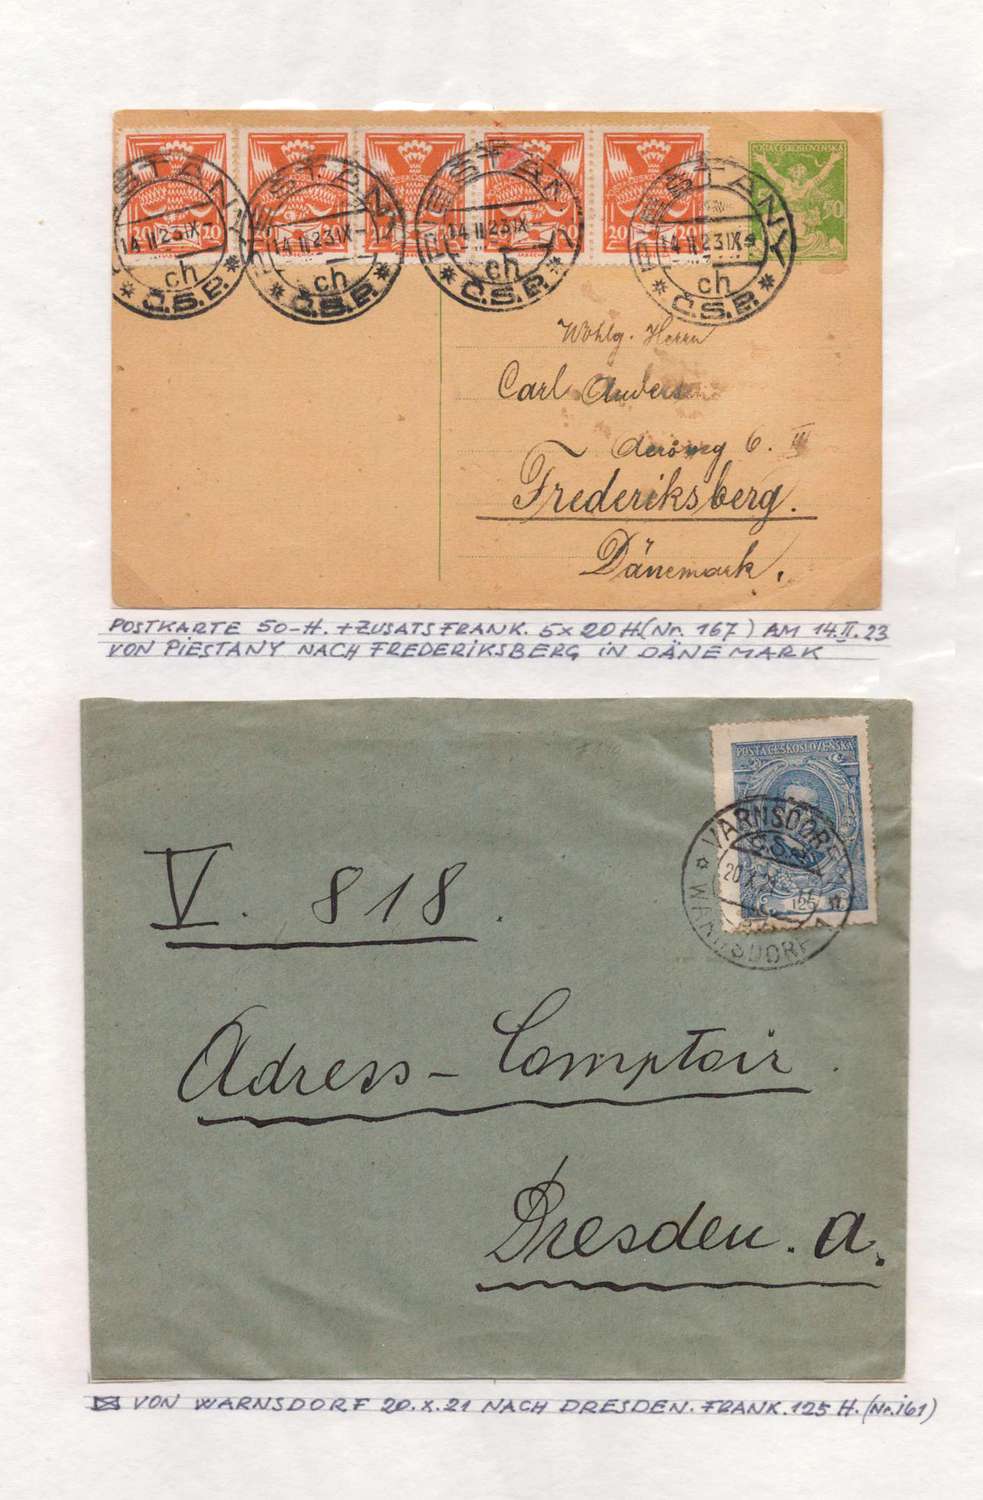 POSTA ČESKOSLOVENSKÁ
20 20
20
50
PIEŠŤANY
14 II 23 IX
ch
* Č.S.P. *
PIEŠŤANY
14 II 23 IX
ch
* Č.S.P. *
PIEŠŤANY
14 II 23 IX
ch
* Č.S.P. *
PIEŠŤANY
14 II 23 IX
ch
* Č.S.P. *
Wohlg. Herrn
Carl
6. III
Frederiksberg.
Dänemark.
POSTKARTE 50-H. + ZUSATSFRANK. 5 x 20 H (Nr. 167) AM 14.II.23
VON PIESTANY NACH FREDERIKSBERG IN DÄNEMARK
POSTA ČESKOSLOVENSKÁ
125
VARNSDORF 1
Č.S.P.
20 X 21
WARNSDORF 1
V. 818.
Adress-Comptoir.
Dresden. a.
VON WARNSDORF 20.X.21 NACH DRESDEN. FRANK. 125 H. (Nr. 161)